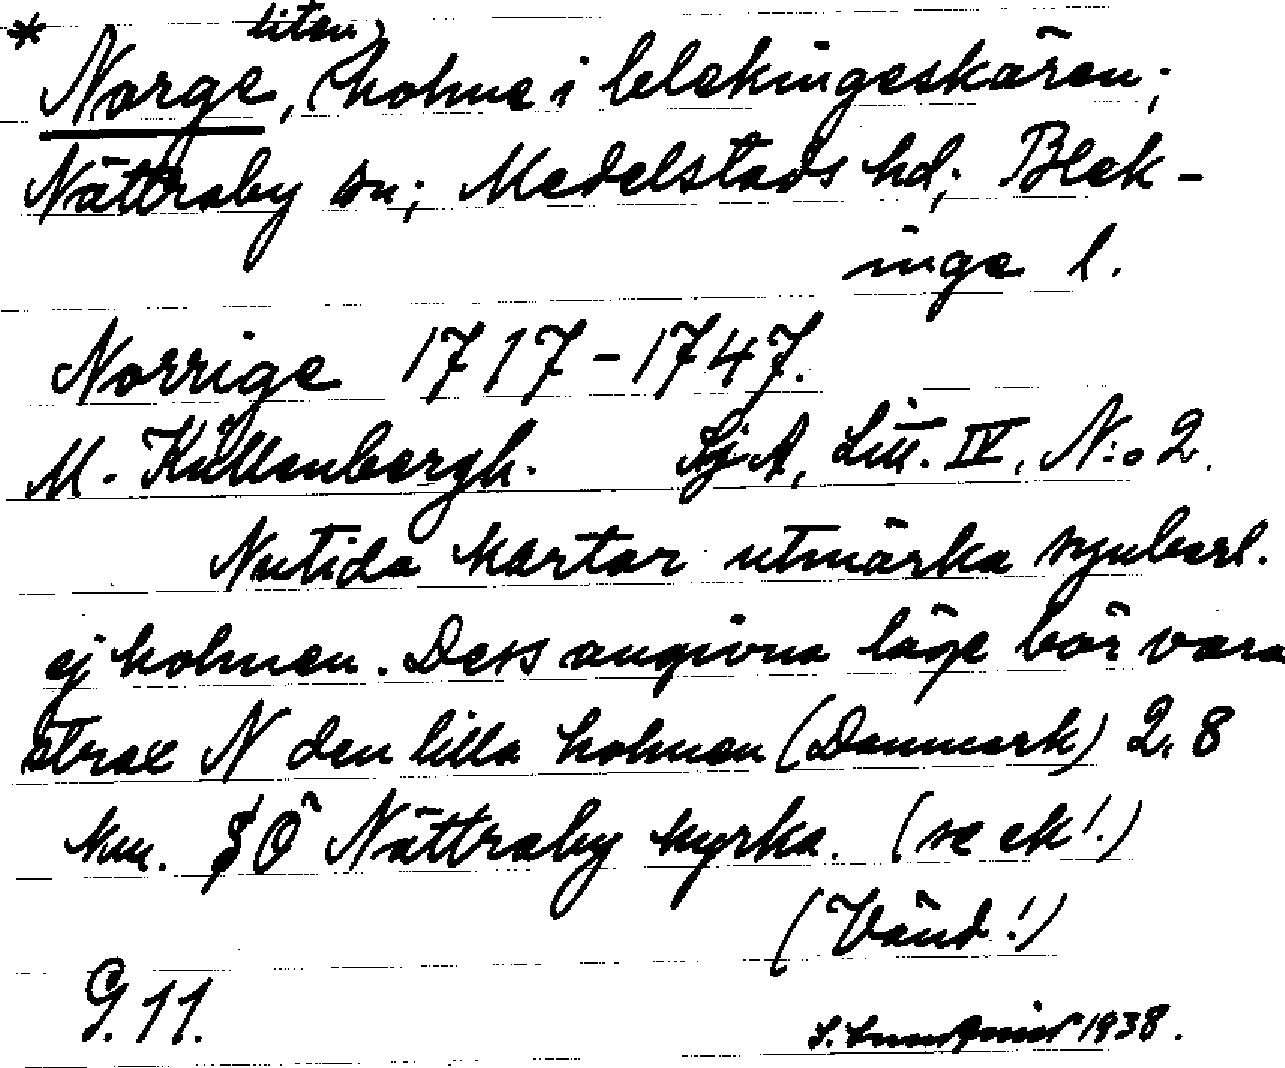 * liten
Norge, holme i blekingeskären;
Nättraby sn; Medelstads hd; Blek-
inge l.
Norrige 1717-1747.
M. Küllenbergh. SjA, Litt. IV, N:o 2.
Nutida kartor utmärka synbarl.
ej holmen. Dess angivna läge bör vara
strax N den lilla holmen (Danmark) 2,8
km. SÖ Nättraby kyrka. (se ek!.)
(Vänd!)
G. 11.
1938.